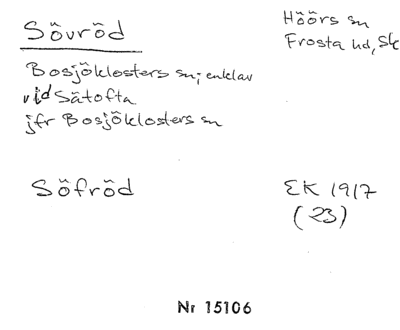 Sövröd
Höörs sn
Frosta hd, Sk
Bosjöklosters sn; enklav
vid Sätofta
jfr Bosjöklosters sn
Söfröd
EK 1917
(23)
Nr 15106